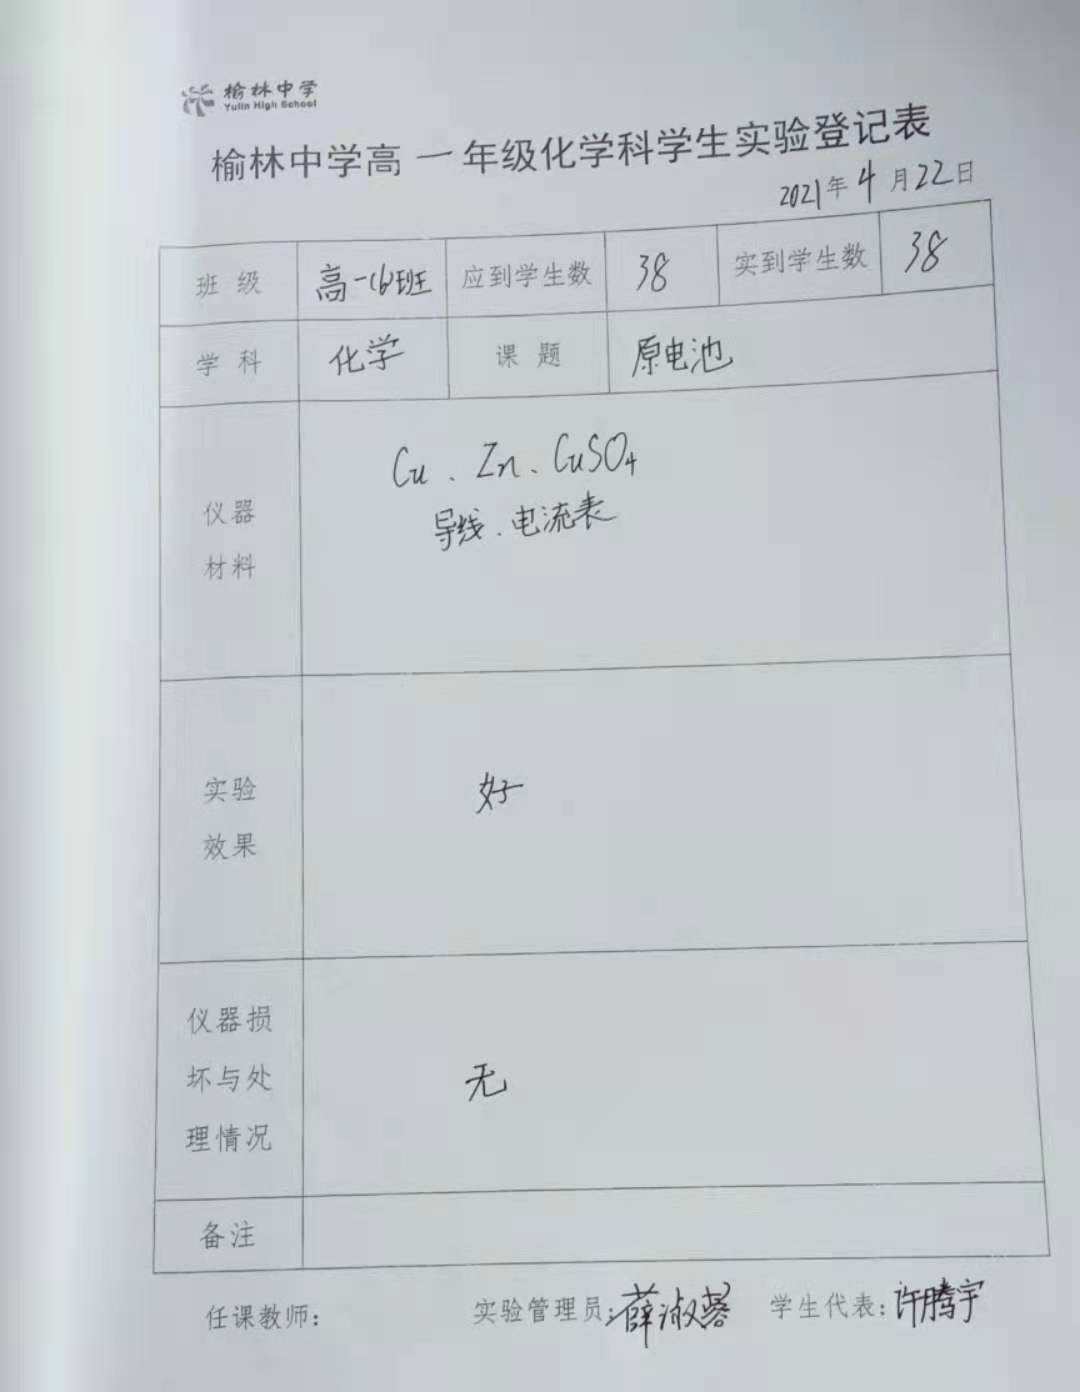 榆林中学
Yulin High School
榆林中学高一年级化学科学生实验登记表
2021年4月22日
班级 高一(6)班 应到学生数 38 实到学生数 38
学科 化学 课题 原电池
仪器
材料
Cu、Zn、CuSO4
导线、电流表
实验
效果
好
仪器损
坏与处
理情况
无
备注
任课教师: 实验管理员:薛淑蓉 学生代表:许腾宇